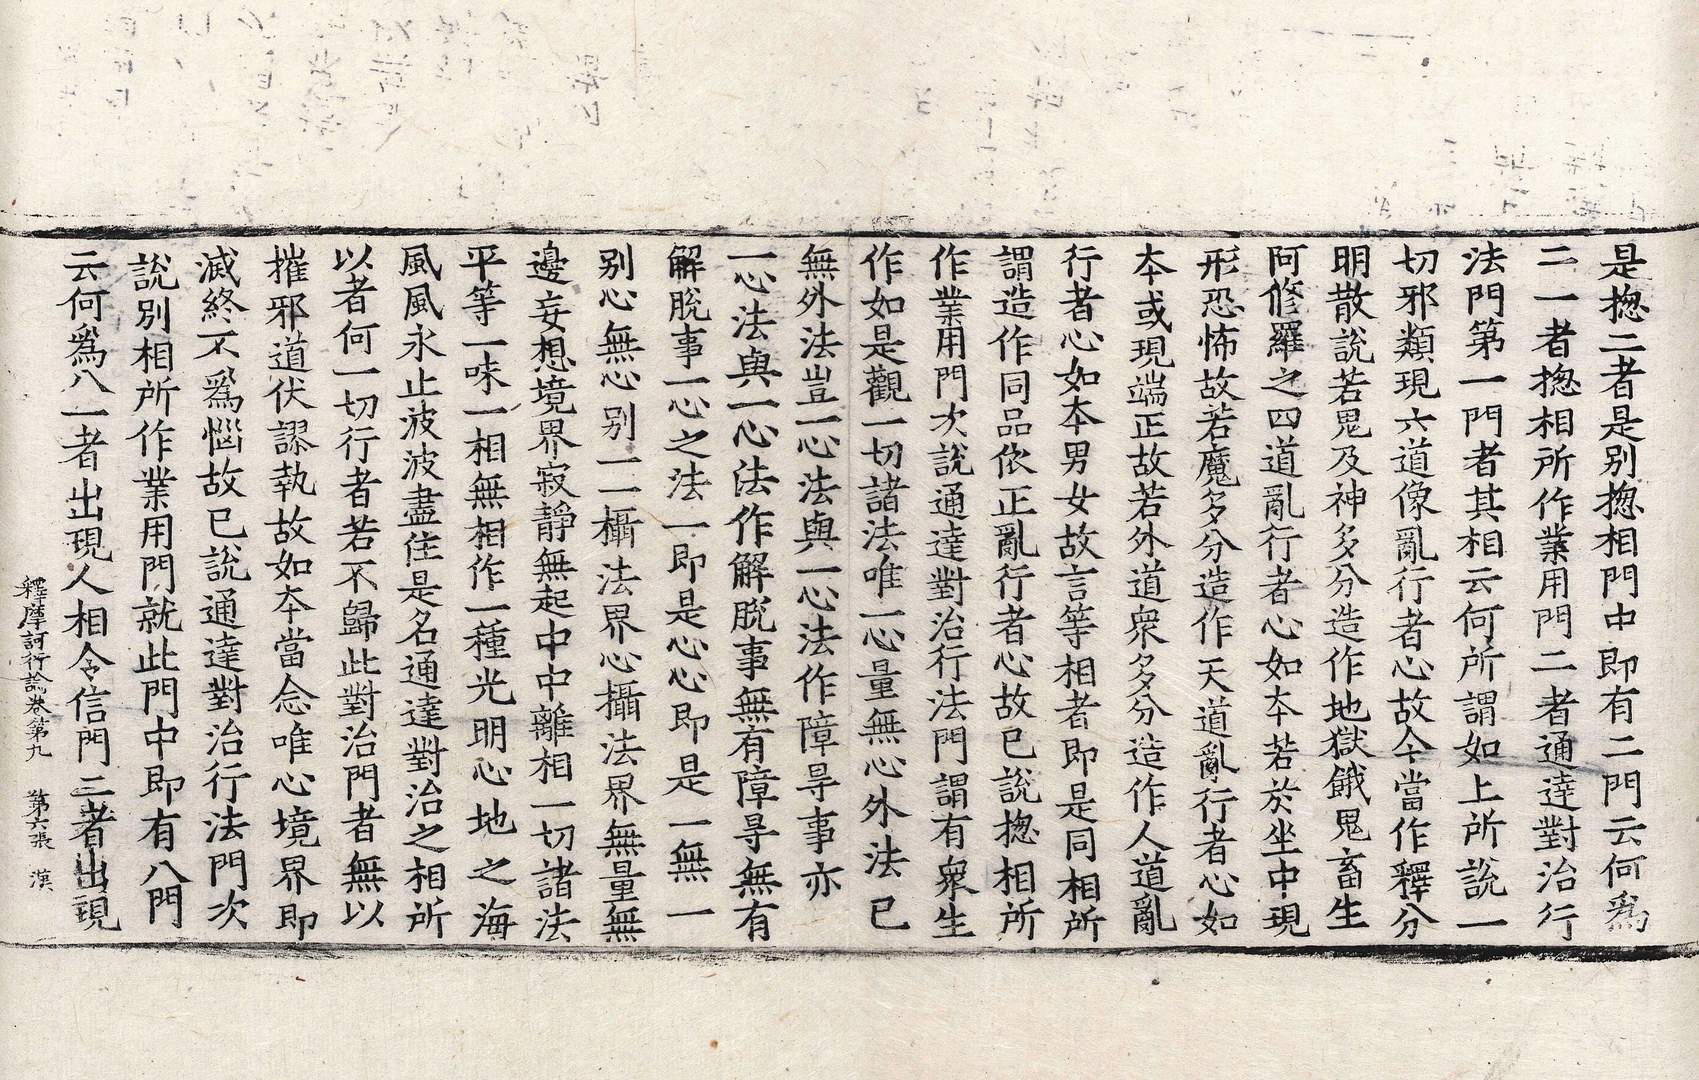 是揔二者是別揔相門中即有二門云何爲
二一者揔相所作業用門二者通達對治行
法門第一門者其相云何所謂如上所說一
切邪類現六道像亂行者心故今當作釋分
明散說若鬼及神多分造作地獄餓鬼畜生
阿修羅之四道亂行者心如本若於坐中現
形恐怖故若魔多分造作天道亂行者心如
本或現端正故若外道衆多分造作人道亂
行者心如本男女故言等相者即是同相所
謂造作同品依正亂行者心故已說揔相所
作業用門次說通達對治行法門謂有衆生
作如是觀一切諸法唯一心量無心外法已
無外法豈一心法與一心法作障㝵事亦
一心法與一心法作解脫事無有障㝵無有
解脫事一心之法一即是心心即是一無一
別心無心別一一攝法界心攝法界無量無
邊妄想境界寂靜無起中中離相一切諸法
平等一味一相無相作一種光明心地之海
風風永止波波盡住是名通達對治之相所
以者何一切行者若不歸此對治門者無以
摧邪道伏謬執故如本當念唯心境界即
滅終不爲惱故已說通達對治行法門次
說別相所作業用門就此門中即有八門
云何爲八一者出現人相令信門二者出現
釋摩訶衍論卷第九 第六張 漢